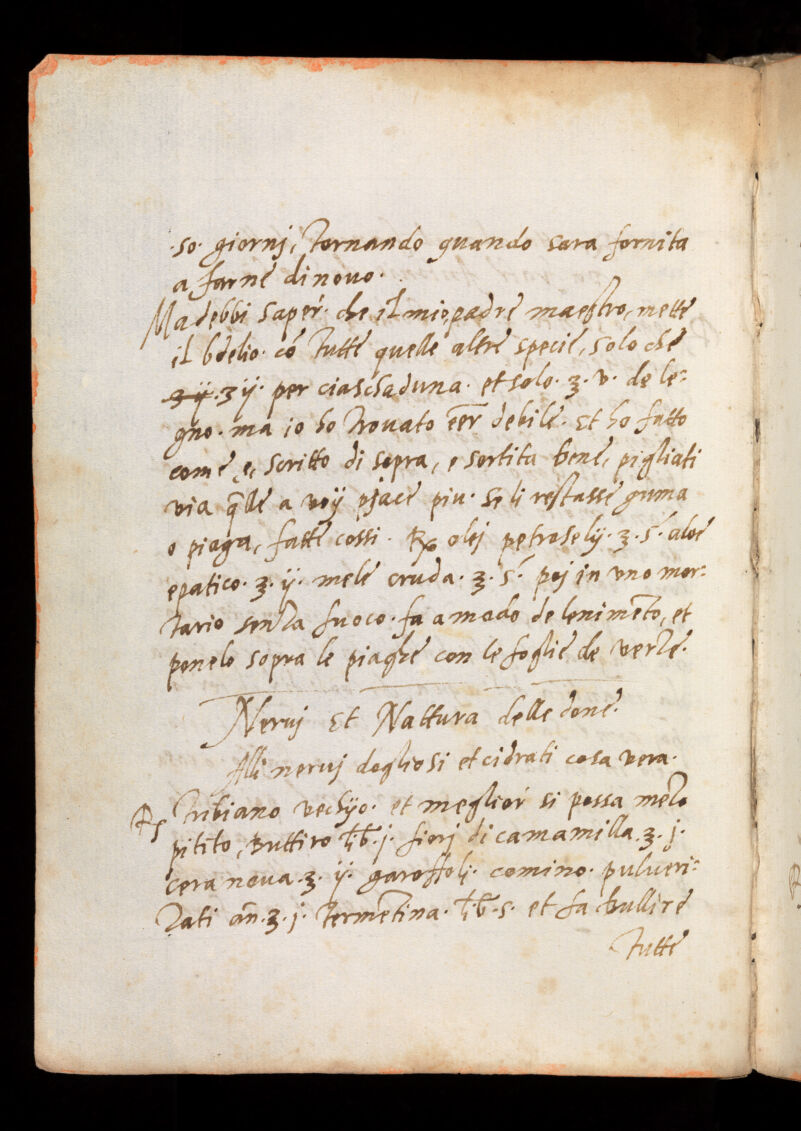 ·so· giornj, Tornando quando sara fornita
a farne dinovo·
Ma debbi saper· che il mio padre maestro, mette
il bdelio· có Tutte quelle altre specie, solo che
ʒ ij· ʒ ij· per ciaschaduna· et solo· ʒ· v· de le-
gno· ma io ho Trovato eēr debile· Et ho fatto
come, e, scritto di sopra, e sortita bene, pigliati
via q̄lle a voij pjace piu· Se li restasse guma
o piaga, fatte cossi· ℞ olej petroselij· ʒ· s· aloe
epatico· ʒ· ij· mele cruda· ʒ· s· poj in vno mor-
tario senza fuoco· fa a modo de lenimēto, et
ponelo sopra le piaghe con le foglie de verze·
Neruj Et Nattura delle done·
Alli neruj dogliosi et cidrati cosa vera·
℞ Tribiano vechijo· et meglior si possa mezo
pitito, Buttiro lb· j· fiorj di camamilla· ʒ· j·
cera nova· ʒ· ij· garoffoli· comino· pulueri-
zati an̄· ʒ· j· Termētina· lb· s· et fa bullire
Tutte